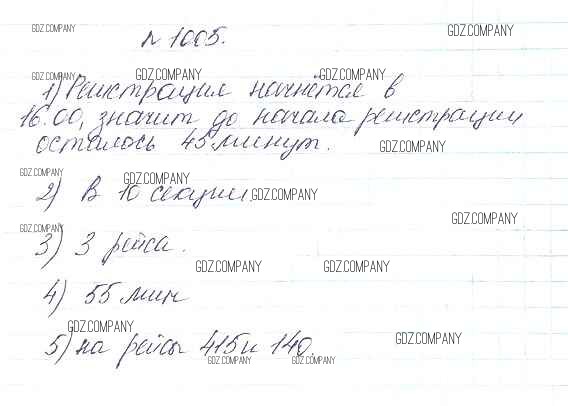 GDZ.COMPANY
GDZ.COMPANY
№ 1005.
GDZ.COMPANY GDZ.COMPANY GDZ.COMPANY
1) Регистрация начнётся в
16.00, значит до начала регистрации
осталось 45 минут.
GDZ.COMPANY
GDZ.COMPANY GDZ.COMPANY
2) В 10 секции.
GDZ.COMPANY
GDZ.COMPANY
GDZ.COMPANY
3) 3 рейса.
GDZ.COMPANY GDZ.COMPANY
4) 55 мин
GDZ.COMPANY
GDZ.COMPANY
5) на рейсы 415 и 140
GDZ.COMPANY GDZ.COMPANY